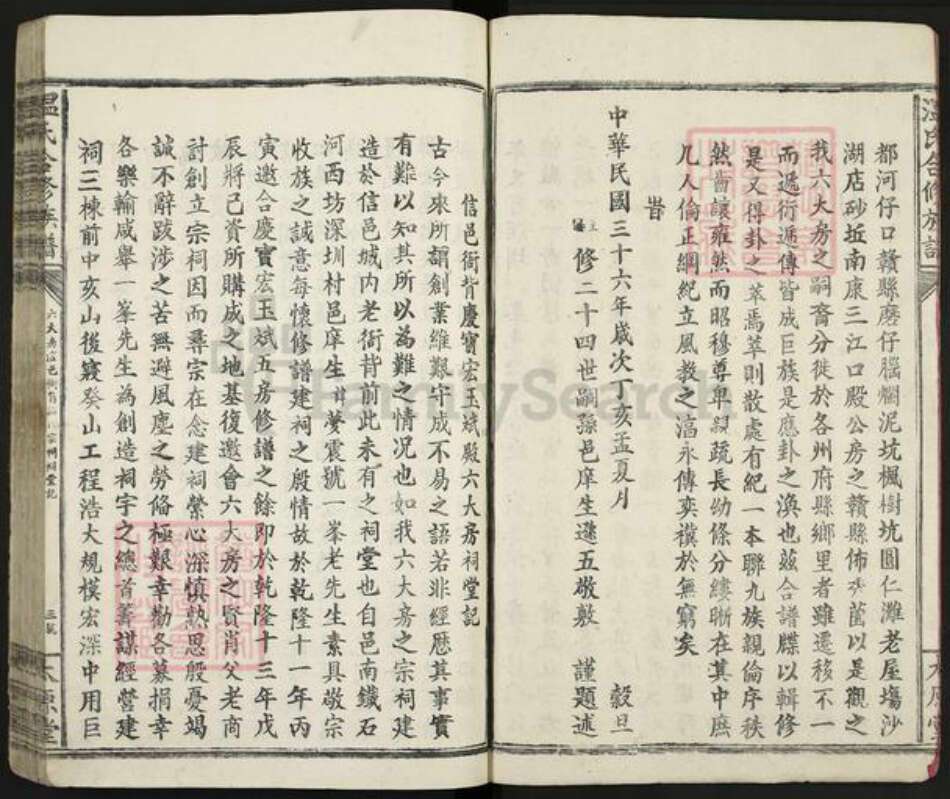 都河仔口贛縣磨仔腦爛泥坑楓樹坑圓仁灘老屋塲沙
湖店砂坵南康三江口殿公房之贛縣佈乎菖以是觀之
我六大房之嗣裔分徙於各州府縣鄉里者雖遷移不一
而遞衍遞傳皆成巨族是應卦之渙也兹合譜牒以輯修
是又得卦之萃焉萃則散處有紀一本聯九族親倫序秩
然齒讓雍然而昭穆尊卑親疏長幼條分縷晰在其中庶
几人倫正綱紀立風教之渢永傳奕禩於無窮矣
旹
中華民國三十六年歲次丁亥孟夏月 榖旦
主編修二十四世嗣孫邑庠生遜五敬敷 謹題述
信邑衙背慶寶宏玉斌殿六大房祠堂記
古今來所謂創業維艱守成不易之語若非經歷其事實
有難以知其所以為難之情况也如我六大房之宗祠建
造於信邑城内老衙背前此未有之祠堂也自邑南鐵石
河西坊深圳村邑庠生諱夢震號一峯老先生素具敬宗
收族之誠意每懷修譜建祠之殷情故於乾隆十一年丙
寅邀合慶寶宏玉斌五房修譜之餘即於乾隆十三年戊
辰將己資所購成之地基復邀會六大房之賢肖父老商
討創立宗祠因而尋宗在念建祠縈心深慎熟思殷憂竭
誠不辭跋涉之苦無避風塵之勞俻極艱幸勸各募捐幸
各樂輸咸舉一峯先生為創造祠宇之總首籌謀經營建
祠三棟前中亥山後寢癸山工程浩大規模宏深中用巨
溫氏合修族譜
太原堂
溫氏合修族譜
太原堂
FamilySearch